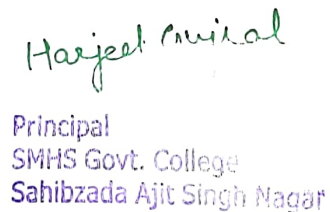 Harjeet
Principal
SMHS Govt. College
Sahibzada Ajit Singh Nagar